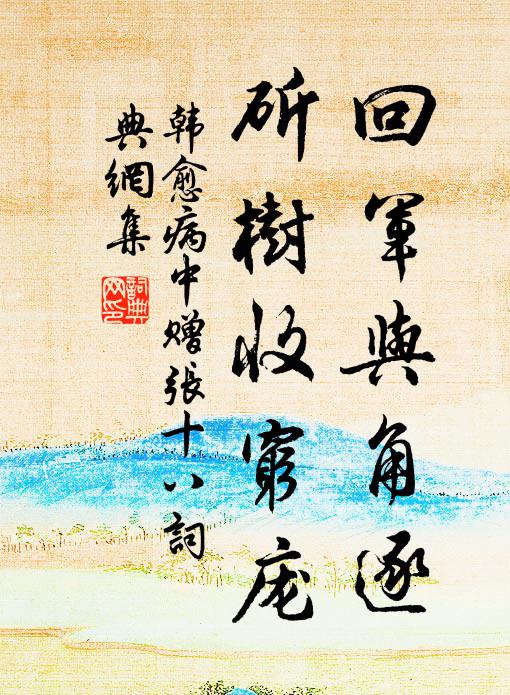 回军與角逐
斫樹收窮庞
韩愈病中赠張十八詞
典網集
詞典
网印